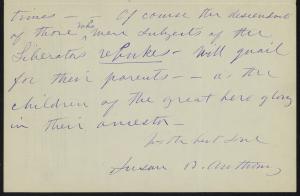 times — — Of course the descendents
of those who were subjects of the
Liberators rebukes — will quail
for their parents — — as the
children of the great hero glory
in their ancestor —
with best love
Susan B. Anthony